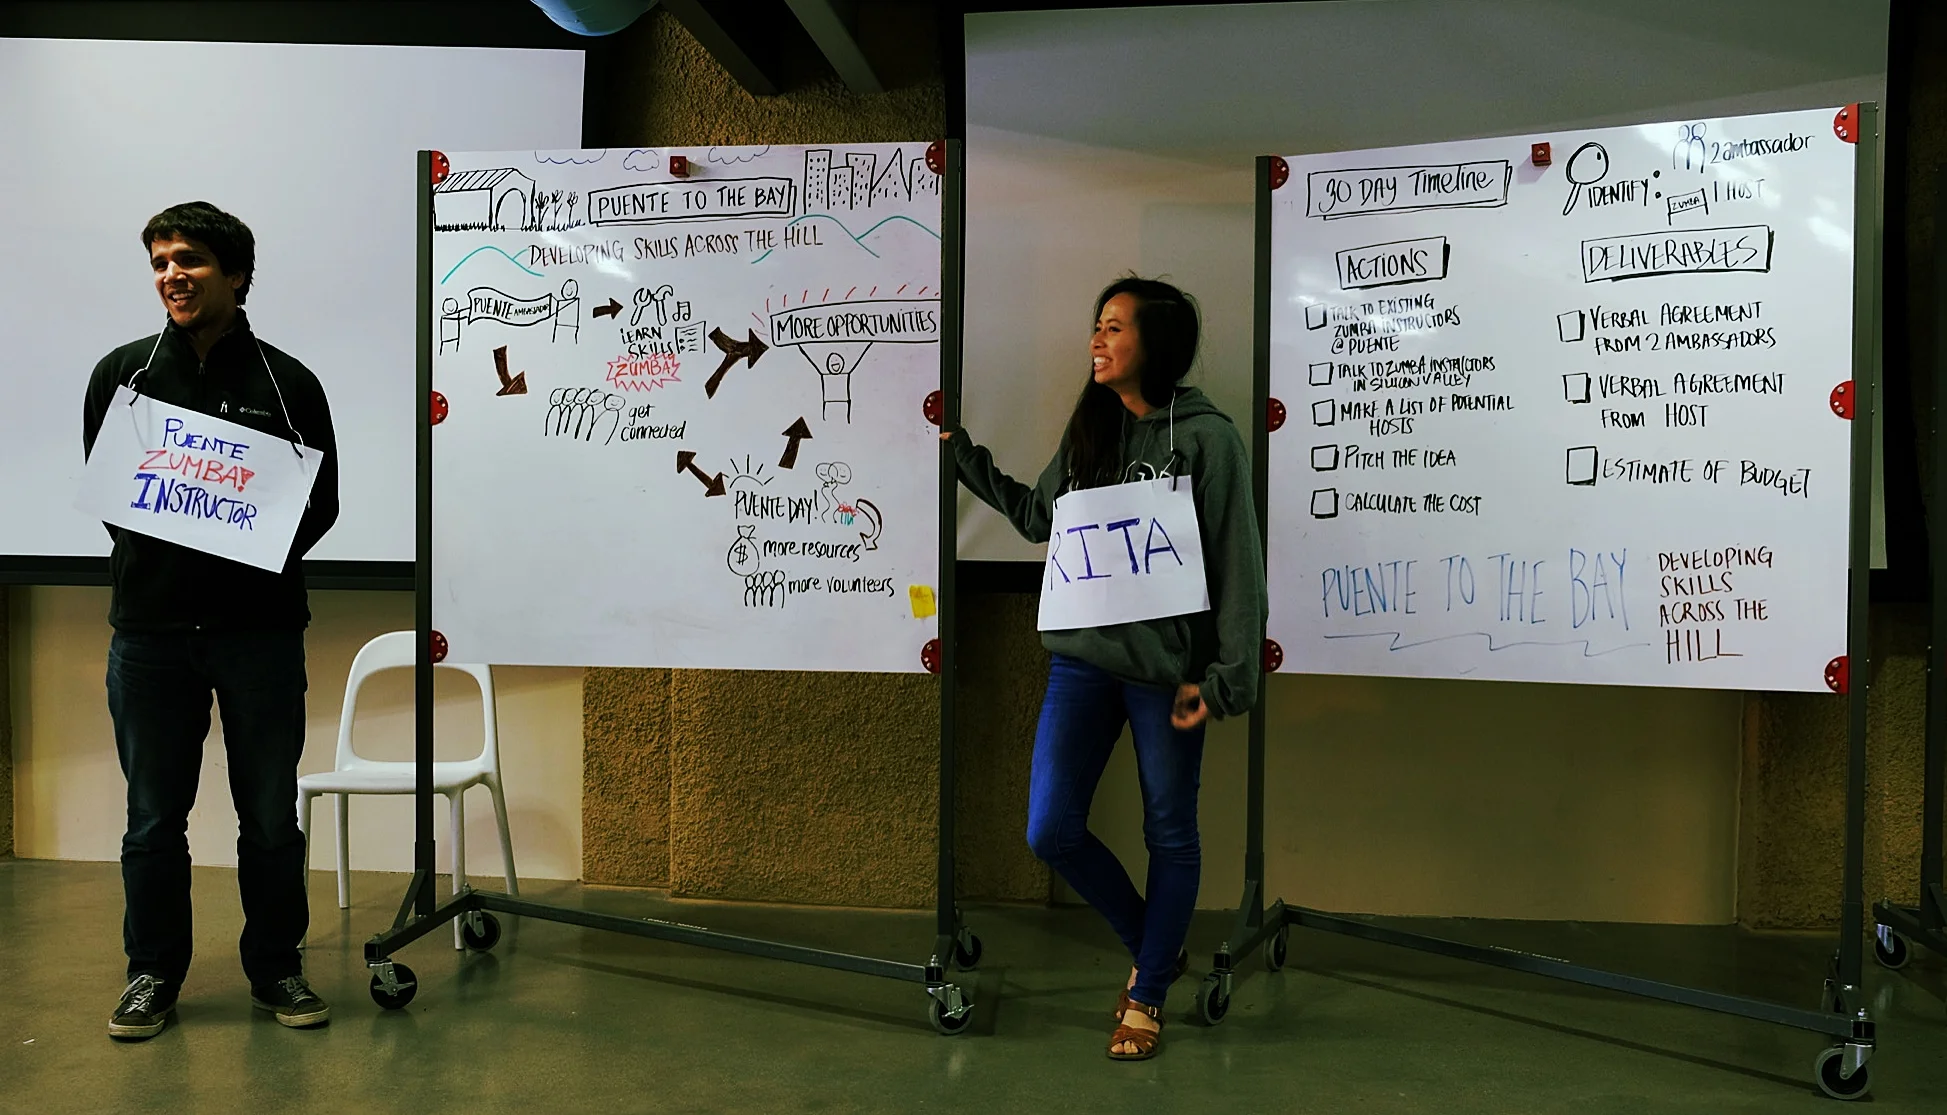 PUENTE
ZUMBA!
INSTRUCTOR
Columbia
PUENTE TO THE BAY
DEVELOPING SKILLS ACROSS THE HILL
PUENTE AMBASSADOR
LEARN
SKILLS
ZUMBA!
MORE OPPORTUNITIES
get
connected
PUENTE DAY!
$
more resources
more volunteers
RITA
30 DAY Timeline
IDENTIFY:
2 ambassador
ZUMBA
1 HOST
ACTIONS
TALK TO EXISTING
ZUMBA INSTRUCTORS
@ PUENTE
TALK TO ZUMBA INSTRUCTORS
IN SILICON VALLEY
MAKE A LIST OF POTENTIAL
HOSTS
PITCH THE IDEA
CALCULATE THE COST
DELIVERABLES
VERBAL AGREEMENT
FROM 2 AMBASSADORS
VERBAL AGREEMENT
FROM HOST
ESTIMATE OF BUDGET
PUENTE TO THE BAY
DEVELOPING
SKILLS
ACROSS THE
HILL